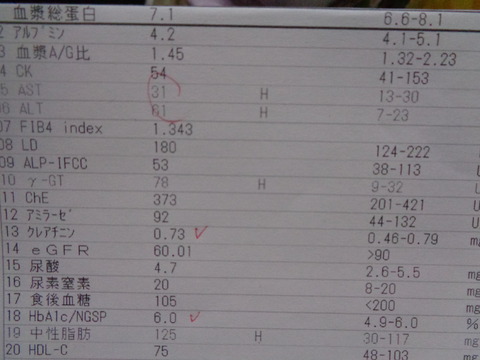 血漿総蛋白 7.1 6.6-8.1
2 ｱﾙﾌﾞﾐﾝ 4.2 4.1-5.1
3 血漿A/G比 1.45 1.32-2.23
4 CK 54 41-153
5 AST 31 H 13-30
06 ALT 61 H 7-23
07 FIB4 index 1.343
08 LD 180 124-222 U
09 ALP-IFCC 53 38-113 U
10 γ-GT 78 H 9-32 U
11 ChE 373 201-421 U
12 ｱﾐﾗｰｾﾞ 92 44-132 U
13 ｸﾚｱﾁﾆﾝ 0.73 0.46-0.79 mg
14 eGFR 60.01 >90
15 尿酸 4.7 2.6-5.5 mg
16 尿素窒素 20 8-20 mg
17 食後血糖 105 <200 mg
18 HbA1c/NGSP 6.0 4.9-6.0 %
19 中性脂肪 125 H 30-117 mg
20 HDL-C 75 48-103 mg